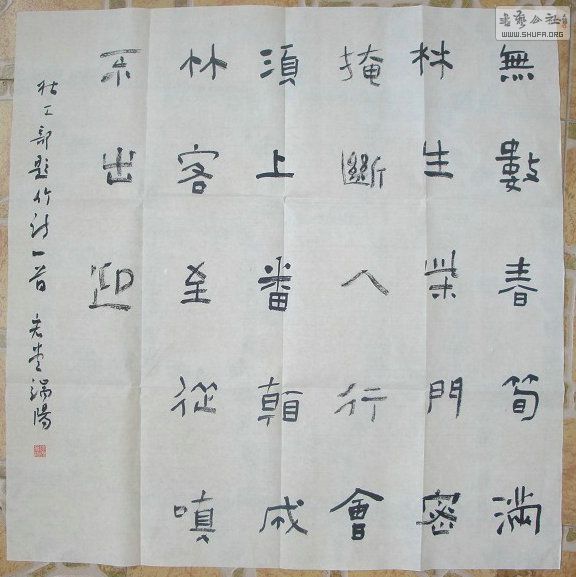 無數春筍滿
林生柴門密
掩斷人行會
須上番看成
竹客至從嗔
不出迎
杜工部題竹詩一首 老 端陽
書藝公社
WWW.SHUFA.ORG